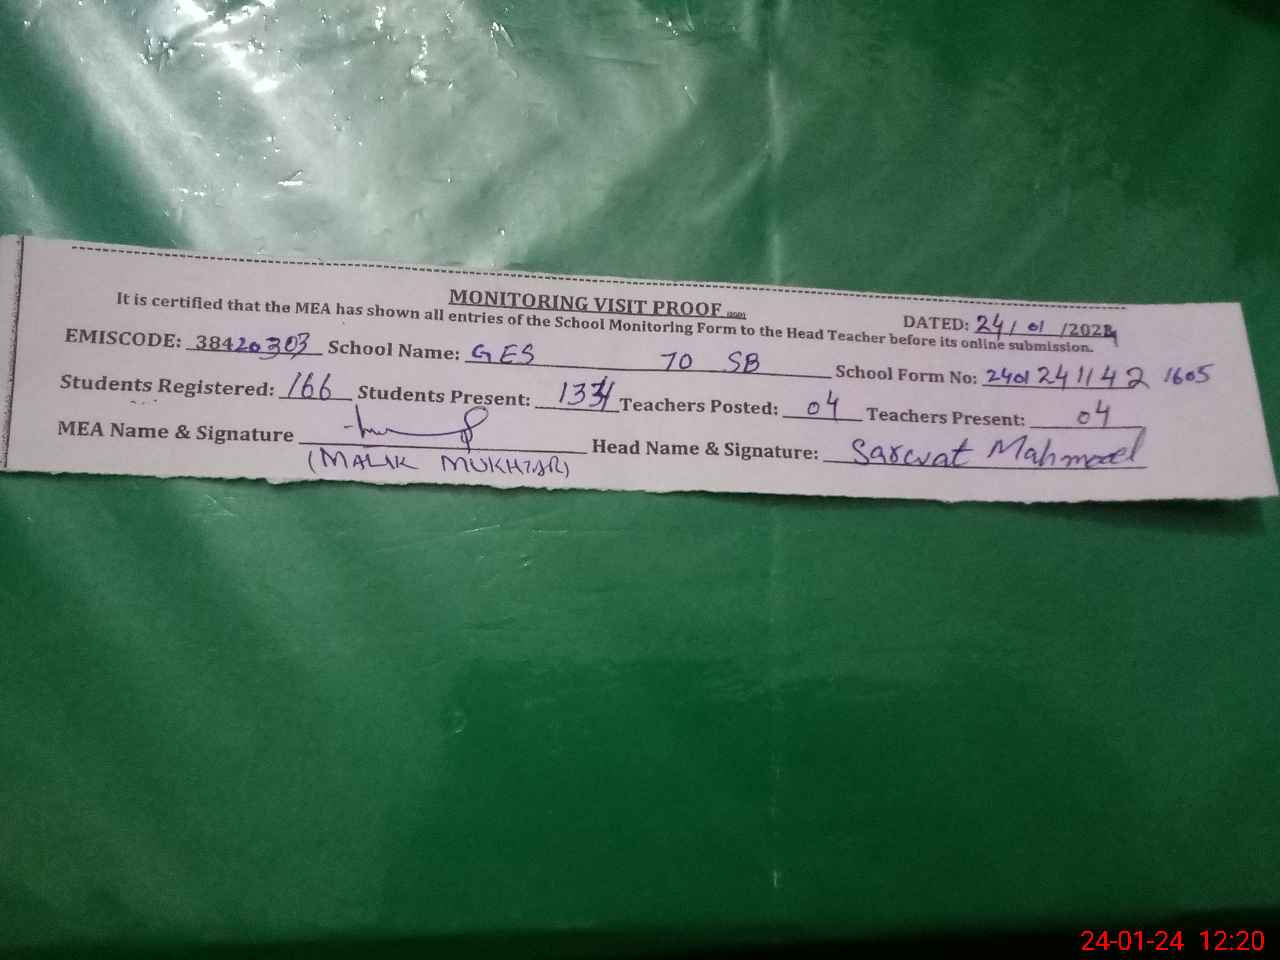 MONITORING VISIT PROOF
DATED: 24/01/2024
It is certified that the MEA has shown all entries of the School Monitoring Form to the Head Teacher before its online submission.
EMISCODE: 38420303 School Name: GES 70 SB School Form No: 2401241142 1605
Students Registered: 166 Students Present: Teachers Posted: 04 Teachers Present: 04
MEA Name & Signature Head Name & Signature: Sarwat Mahmood
(MALIK MUKHTAR)
24-01-24 12:20